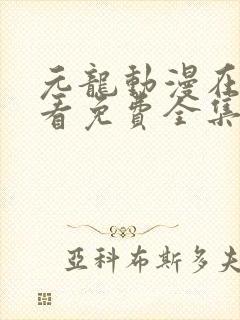 元龍動漫在
看免費全集
亞科布斯多夫